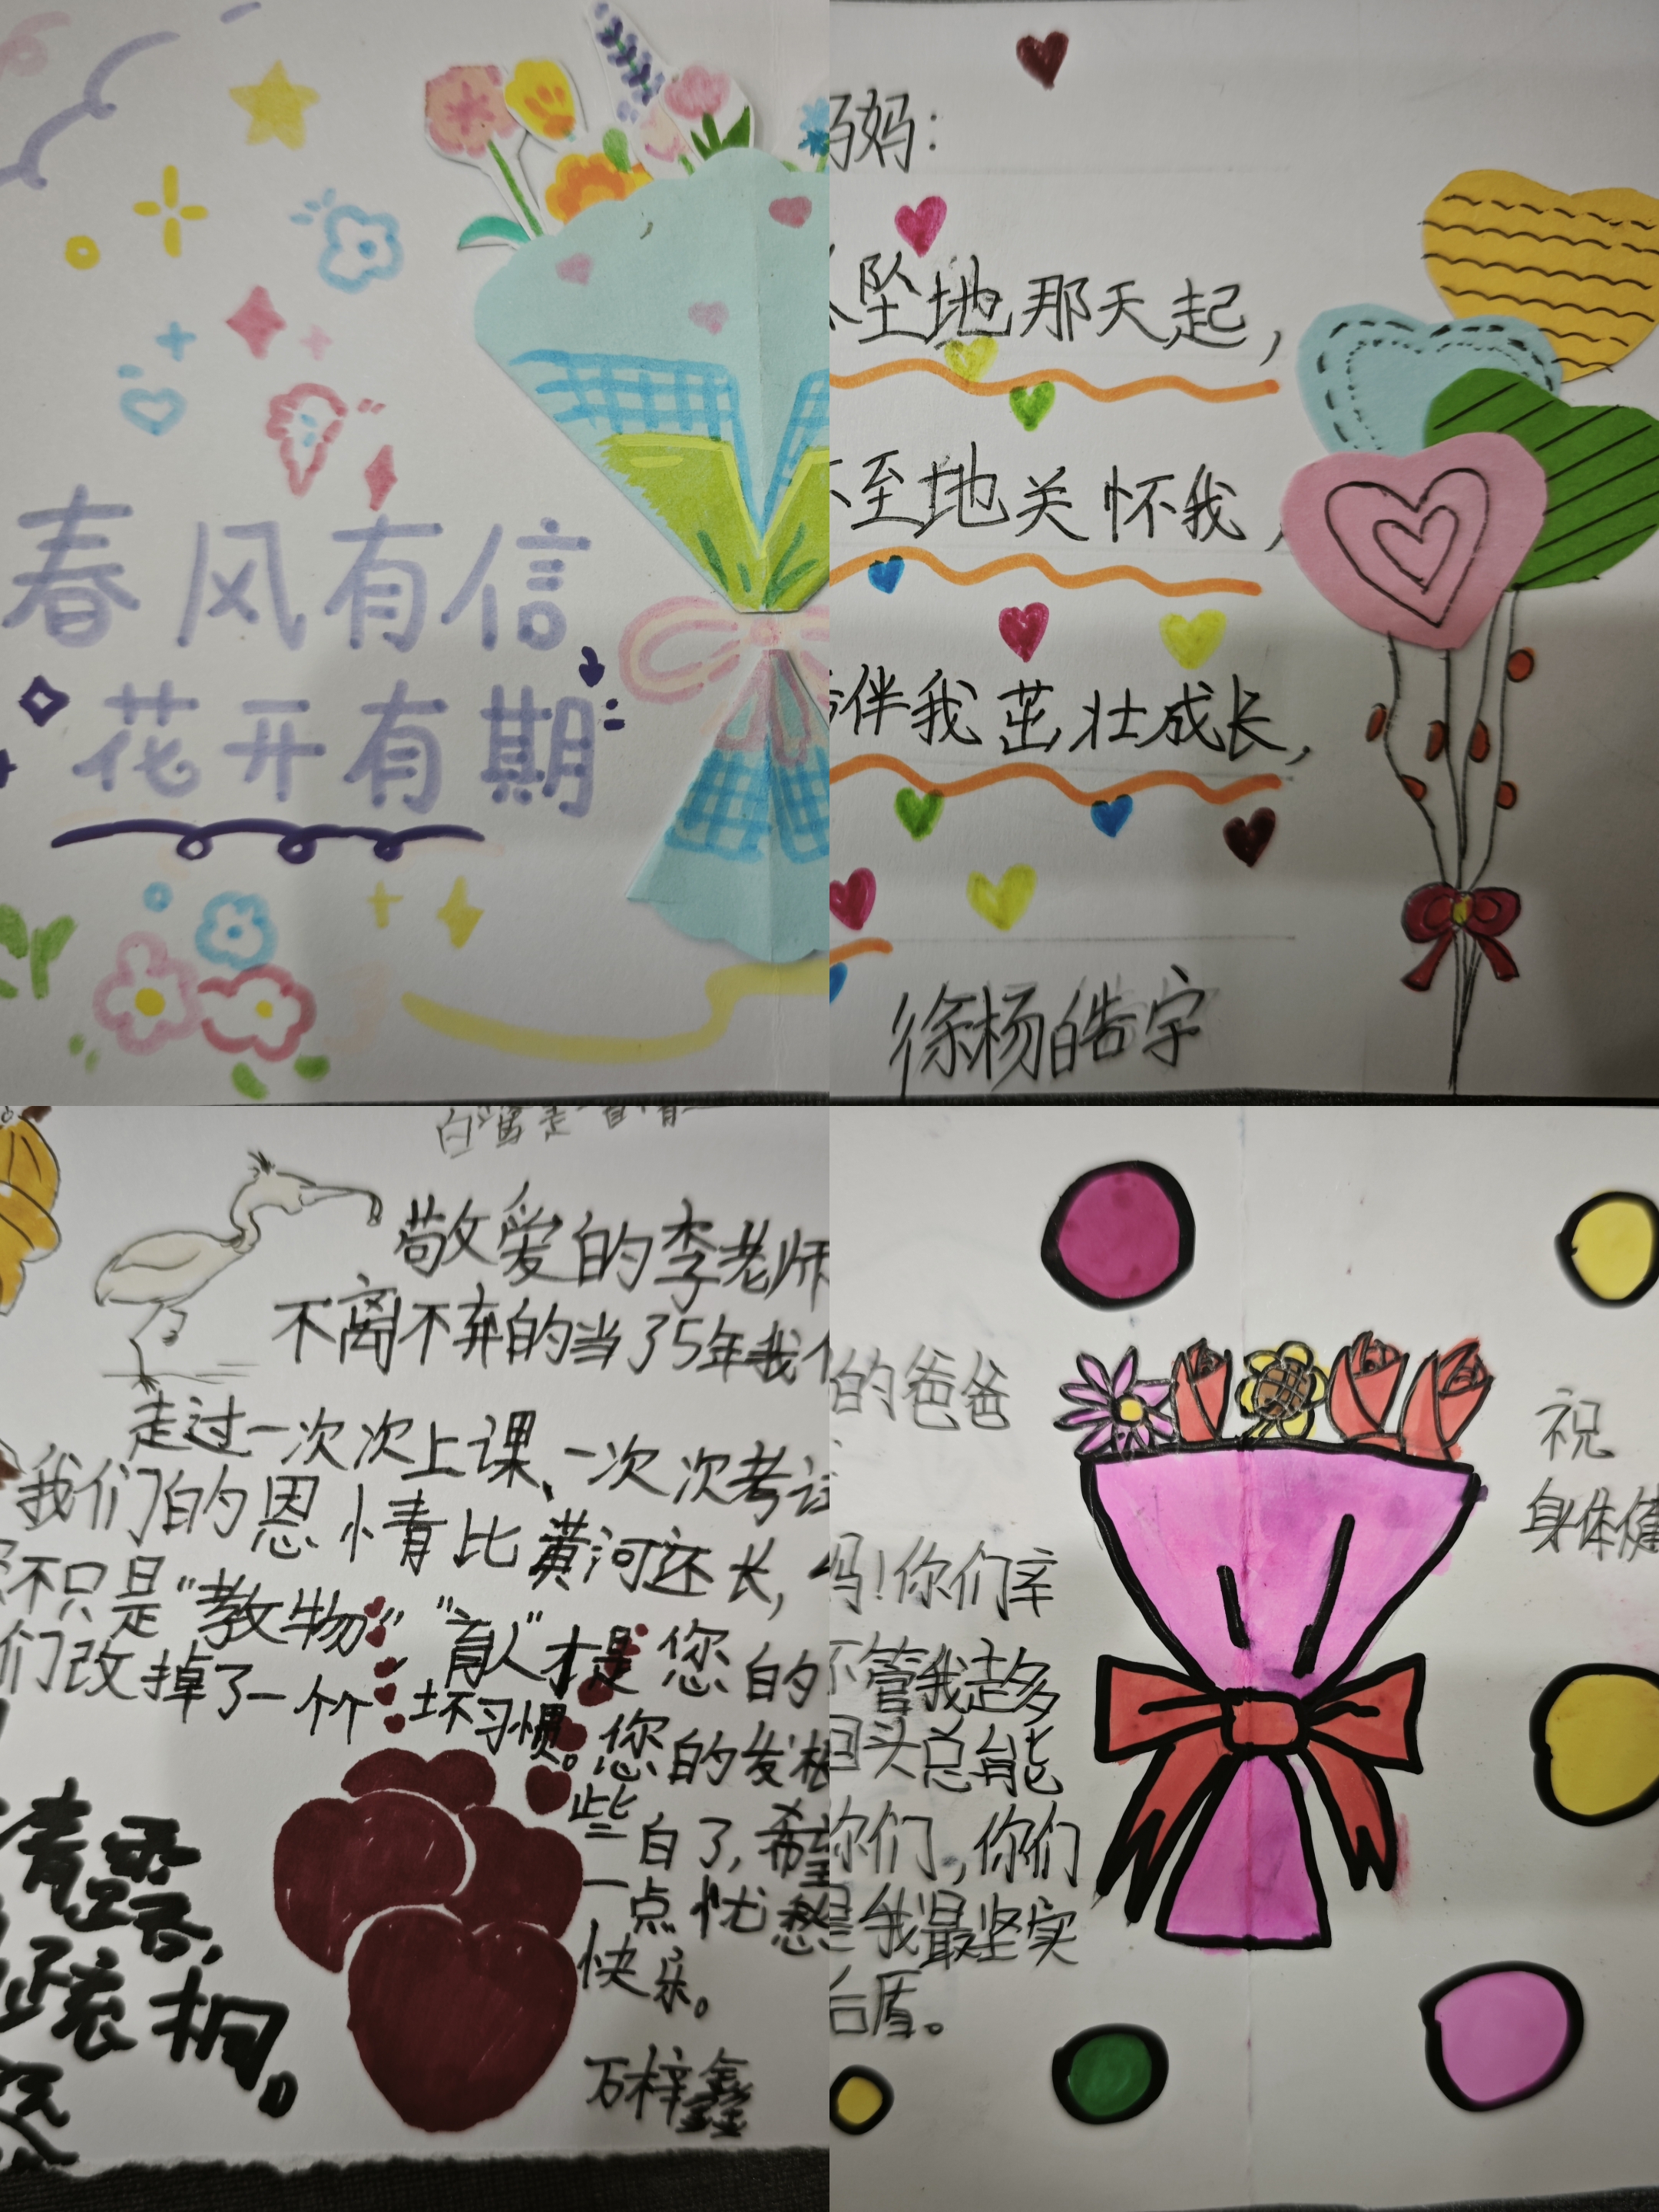 春风有信
花开有期
妈妈：
坠地那天起，
至地关怀我，
伴我茁壮成长，
徐杨皓宇
敬爱的李老师
不离不弃的当了5年我们
走过一次次上课、一次次考试
我们的恩情比黄河还长，
不只是“教物”“育人”才是您的
们改掉了一个个坏习惯。您的发根
些白了，希望
一点忧愁
快乐。
万梓鑫
的爸爸
妈！你们辛
不管我走多
回头总能
你们，你们
是我最坚实
后盾。
祝
身体健